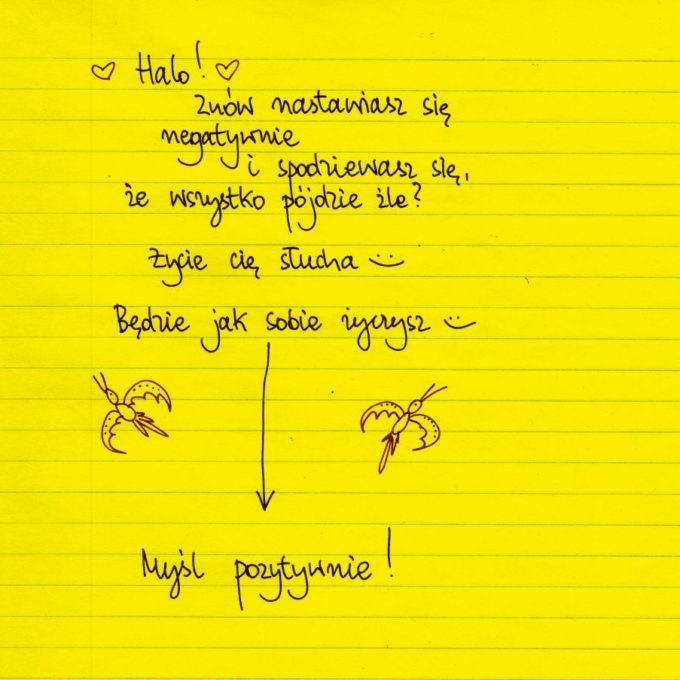 Halo!
znów nastawiasz się
negatywnie
i spodziewasz się,
że wszystko pójdzie źle?
Życie cię słucha :)
Będzie jak sobie życzysz :)
Myśl pozytywnie!